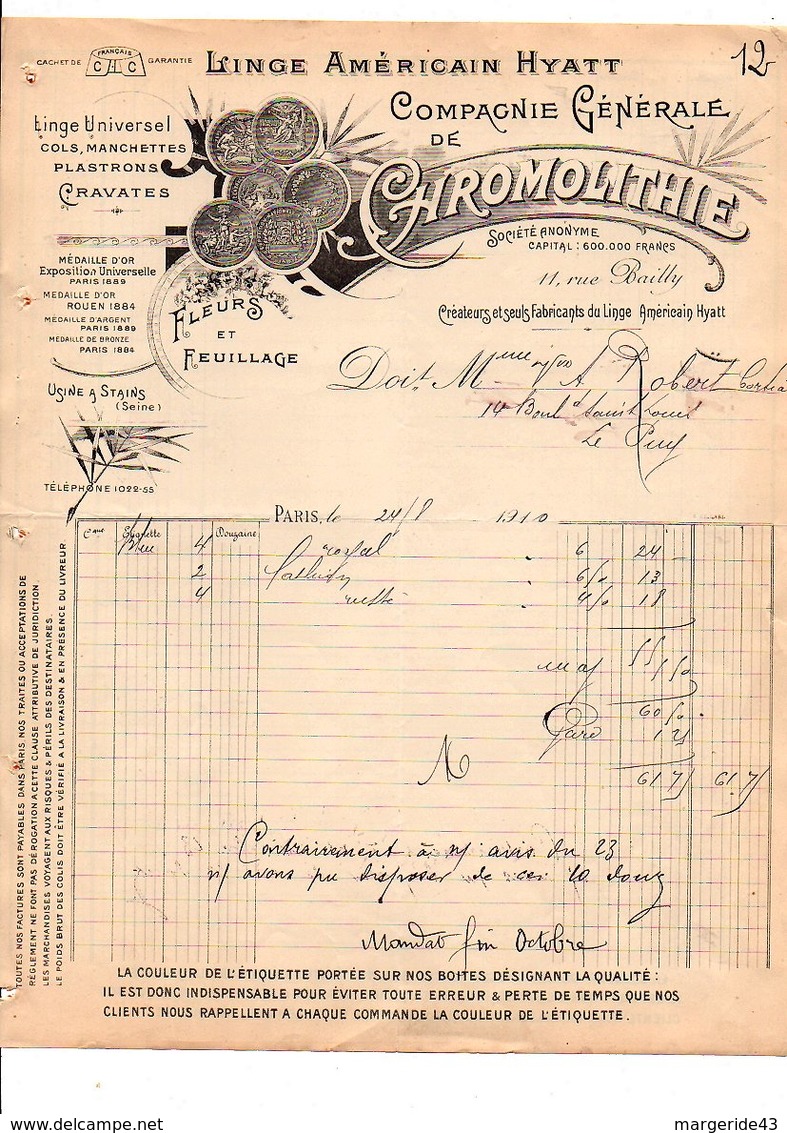 CACHET DE FRANÇAIS C H C GARANTIE
LINGE AMÉRICAIN HYATT
12
COMPAGNIE GÉNÉRALE
DE
CHROMOLITHIE
SOCIÉTÉ ANONYME
CAPITAL : 600.000 FRANCS
11, rue Bailly
Créateurs et seuls Fabricants du Linge Américain Hyatt
Linge Universel
COLS, MANCHETTES
PLASTRONS
CRAVATES
MÉDAILLE D'OR
Exposition Universelle
PARIS 1889
MÉDAILLE D'OR
ROUEN 1884
MÉDAILLE D'ARGENT
PARIS 1889
MÉDAILLE DE BRONZE
PARIS 1884
FLEURS
ET
FEUILLAGE
USINE A STAINS
(Seine)
TÉLÉPHONE 1022-55
Doit M A Robert
14 Boul d Saint Louis
Le Puy
PARIS, le 24/8 1910
Cque Etiquette Douzaine
bleu 4 6 24
2 6/50 13
4 4/50 18
55/50
60/50
Caro 1 25
61 75 61 75
Contrairement à n/ avis du 23
n/ avons pu disposer de ces 10 douz
Mandat fin Octobre
LA COULEUR DE L'ÉTIQUETTE PORTÉE SUR NOS BOITES DÉSIGNANT LA QUALITÉ :
IL EST DONC INDISPENSABLE POUR ÉVITER TOUTE ERREUR & PERTE DE TEMPS QUE NOS
CLIENTS NOUS RAPPELLENT A CHAQUE COMMANDE LA COULEUR DE L'ÉTIQUETTE.
TOUTES NOS FACTURES SONT PAYABLES DANS PARIS, NOS TRAITES OU ACCEPTATIONS DE
RÈGLEMENT NE FONT PAS DÉROGATION A CETTE CLAUSE ATTRIBUTIVE DE JURIDICTION.
LES MARCHANDISES VOYAGENT AUX RISQUES & PÉRILS DES DESTINATAIRES.
LE POIDS BRUT DES COLIS DOIT ÊTRE VÉRIFIÉ A LA LIVRAISON & EN PRÉSENCE DU LIVREUR
margeride43